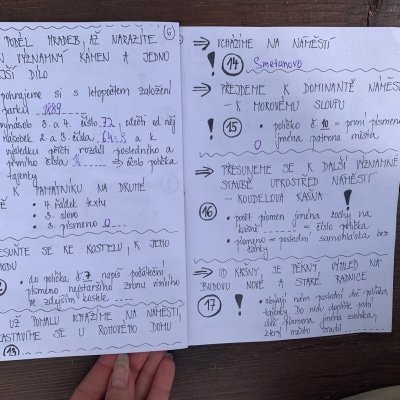 PODÉL HRADEB, AŽ NARAZÍTE
VÝZNAMNÝ KÁMEN A JEDNO
DÍLO
si s letopočtem založení
parku 1889
3. a 4. číslo 72, od něj
násobek 2. a 3. čísla 64 a k
přičti rozdíl posledního a
prvního čísla číslo políčka
tajenky
K PAMÁTNÍKU NA DRUHÉ
• 4. řádek textu
• 3. slovo
• 3. písmeno O
SE KE KOSTELU, K JEHO
• do políčka č. 7 napiš počáteční
písmeno nejstaršího zvonu
ve zdejším kostele
UŽ POMALU VCHÁZÍME NA NÁMĚSTÍ,
ZASTAVÍME SE U ROHOVÉHO DOMU
13
6
⇒ VCHÁZÍME NA NÁMĚSTÍ
! 14 Smetanovo
⇒ PŘEJDEME K DOMINANTĚ NÁMĚSTÍ
– K MOROVÉMU SLOUPU
! 15 • políčko č. 10 = první písmeno
jména patrona města
O
⇒ PŘESUNEME SE K DALŠÍ VÝZNAMNÉ
STAVBĚ UPROSTŘED NÁMĚSTÍ
– KOUDELOVA KAŠNA
16 • počet písmen jména sochy na
kašně = číslo políčka
• písmeno = poslední samohláska bez
⇒ OD KAŠNY JE PĚKNÝ VÝHLED NA
BUDOVU NOVÉ A STARÉ RADNICE
17 ! • zbývají nám poslední dvě políčka
tajenky. Do nich doplňte první
dvě písmena jména zvonku,
který město